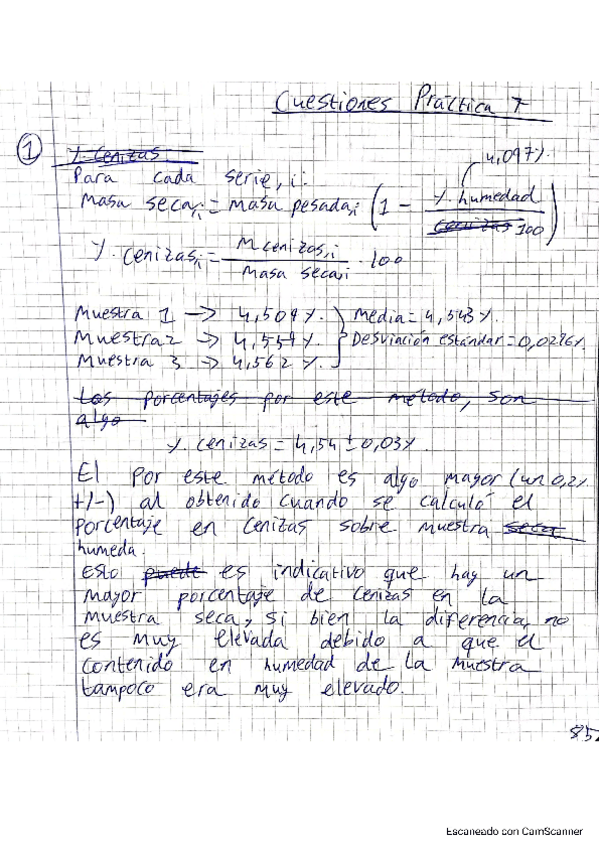 Cuestiones Práctica 7
1
% cenizas
Para cada serie, i:
4,097%
masa seca,i = masa pesada,i (1 - % humedad / cenizas 100)
% cenizas,i = M cenizas,i / masa seca,i · 100
Muestra 1 -> 4,509%. Media = 4,543%.
Muestra 2 -> 4,559%. Desviación estándar = 0,0296%.
Muestra 3 -> 4,562%.
Los porcentajes por este método, son
algo
% cenizas = 4,54 ± 0,03%
El por este método es algo mayor (un 0,2%
+/-) al obtenido cuando se calculó el
porcentaje en cenizas sobre muestra seca
humeda.
Esto puede es indicativo que hay un
mayor porcentaje de cenizas en la
muestra seca, si bien la diferencia no
es muy elevada debido a que el
contenido en humedad de la muestra
tampoco era muy elevado.
85
Escaneado con CamScanner